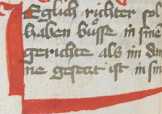 Eglich richter sol
haben bůsse in sine
gerichte als im
ne gesetzt ist in sin